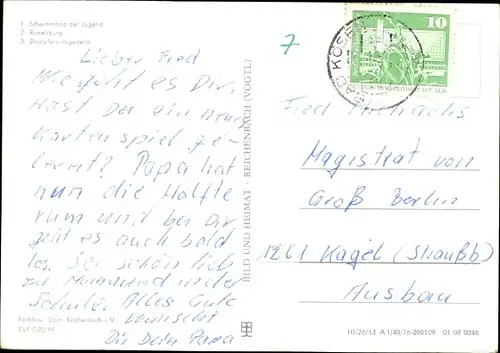 1. Schwimmbad der Jugend
2. Rudelsburg
3. Dampferanlegestelle
Lieber Fred
Wie geht es Dir.
Hast Du ein neues
Kartenspiel ge-
lernt? Papa hat
nun die Hälfte
rum und bei Dir
geht es auch bald
los. Sei schön lieb
zu und in der
Schule. Alles Gute
wünscht
Dir Dein Papa
Farbfoto: Darr, Reichenbach i. V.
EVP 0,20 M
BILD UND HEIMAT · REICHENBACH (VOGTL)
7
BAD KÖSEN
10
Fred Michaelis
Magistrat von
Groß Berlin
1261 Kagel (Straußb)
Ausbau
III/26/13 A 1/40/76-260109 01 08 0046